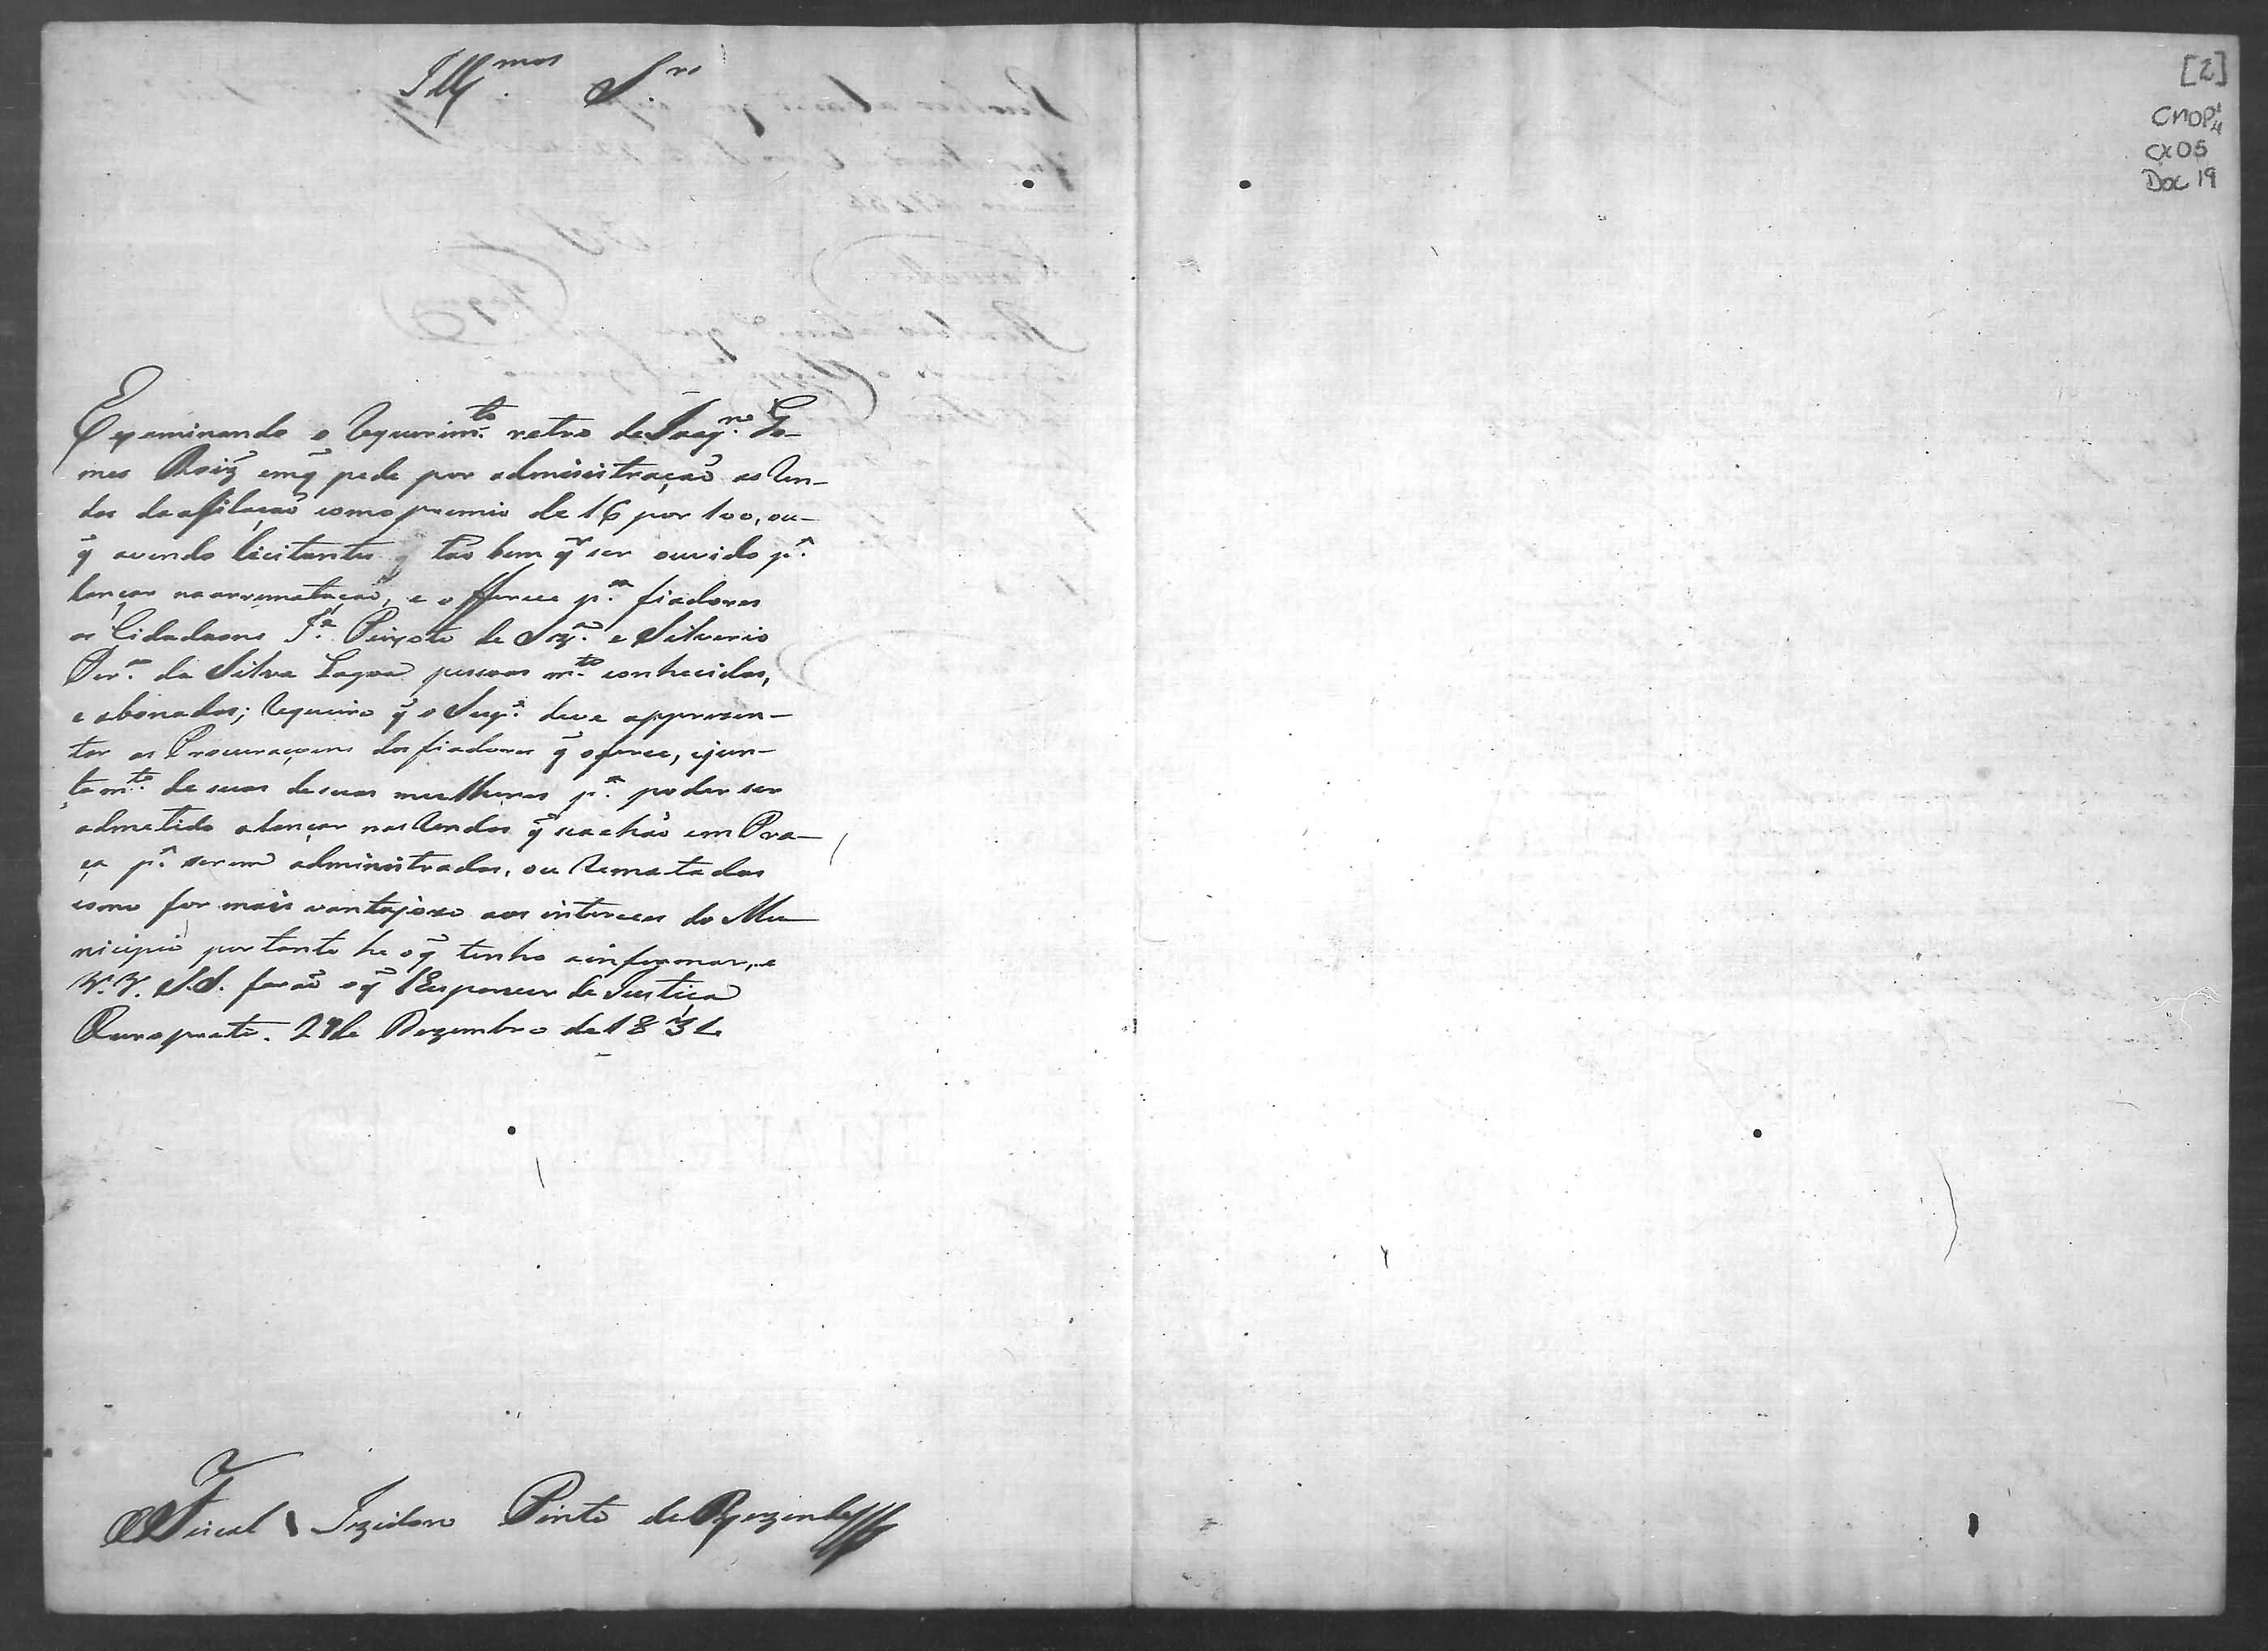 Ill.mos S.rs
Examinando o requerim.to retro de Joaq.m Go-
mes Roiz̃ em q̃ pede por administração as ren-
das da afilação com o premio de 16 por 100, ou
q̃ avendo licitantes q̃ tão bem q.r ser ouvido p.a
lançar na arrematação, e offerece p.a fiadores
os Cidadaons J.e Peixoto de Sz.a e Silverio
Per.a da Silva Lagoa pessoas m.to conhecidas,
e abonadas; requeiro q̃ o Sup.e deve appresen-
tar as Procuraçoens dos fiadores q̃ oferece, ejun-
tam.te de suas de suas mulheres p.a poder ser
admetido alançar nas rendas q̃ se achão em Pra-
ça p.a serem administradas, ou rematadas
como for mais vantajozo aos intereces do Mu-
nicipio portanto he oq̃ tenho ainformar, e
V.V. S.S. farão oq̃ for de Justiça
Ouropreto. 29 de Dezembro de 183
O Fiscal Izidoro Pinto de Rezende
[2]
CMOP
CX05
Doc 19